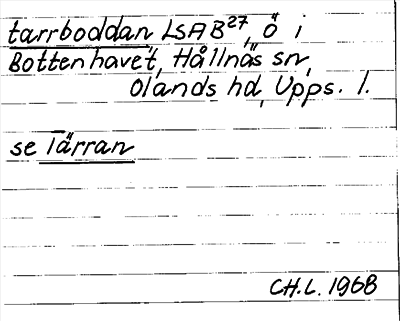 tarrboddan LSAB27, ö i
Bottenhavet, Hållnäs sn,
Olands hd, Upps. l.
se Tärran
CH.L. 1968